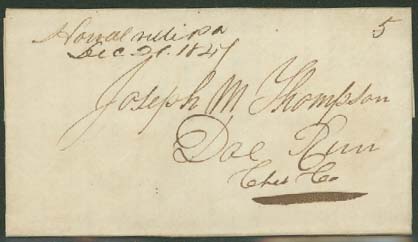 5
Dec 21. 1847
Joseph M Thompson
Doe Run
Ches Co